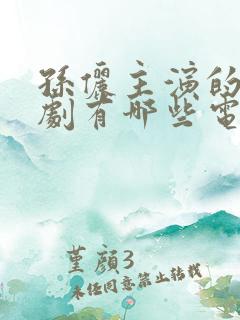 孫儷主演的
劇有哪些電
堇顏3
未經同意禁止轉載